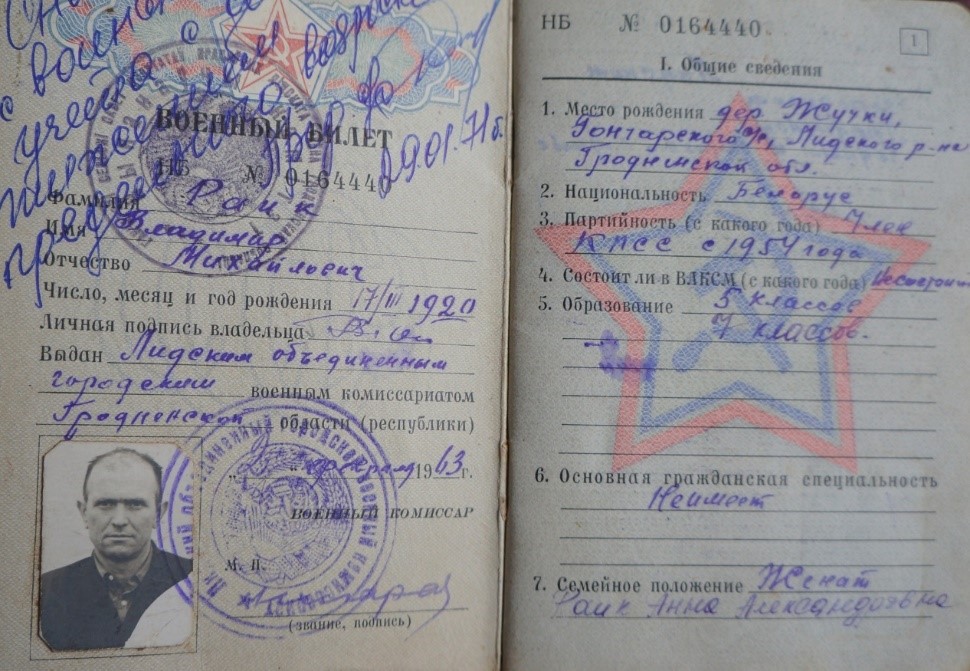 с воен
учёта
возрас
29.01.71г.
ВОЕННЫЙ БИЛЕТ
НБ № 0164440
Фамилия Раик
Имя Владимир
Отчество Михайлович
Число, месяц и год рождения 17/III 1920
Личная подпись владельца
Выдан Лидским объединенным
городским военным комиссариатом
Гродненской области (республики)
февраля 1963 г.
ВОЕННЫЙ КОМИССАР
М. П.
(звание, подпись)
НБ № 0164440
1
I. Общие сведения
1. Место рождения дер Жучки,
Гончарского с/с, Лидского р-на
Гродненской обл.
2. Национальность Белорус
3. Партийность (с какого года) Член
КПСС с 1954 года
4. Состоит ли в ВЛКСМ (с какого года)
5. Образование 5 классов
7 классов.
6. Основная гражданская специальность
Неимеет
7. Семейное положение Женат
Раик Анна Александровна